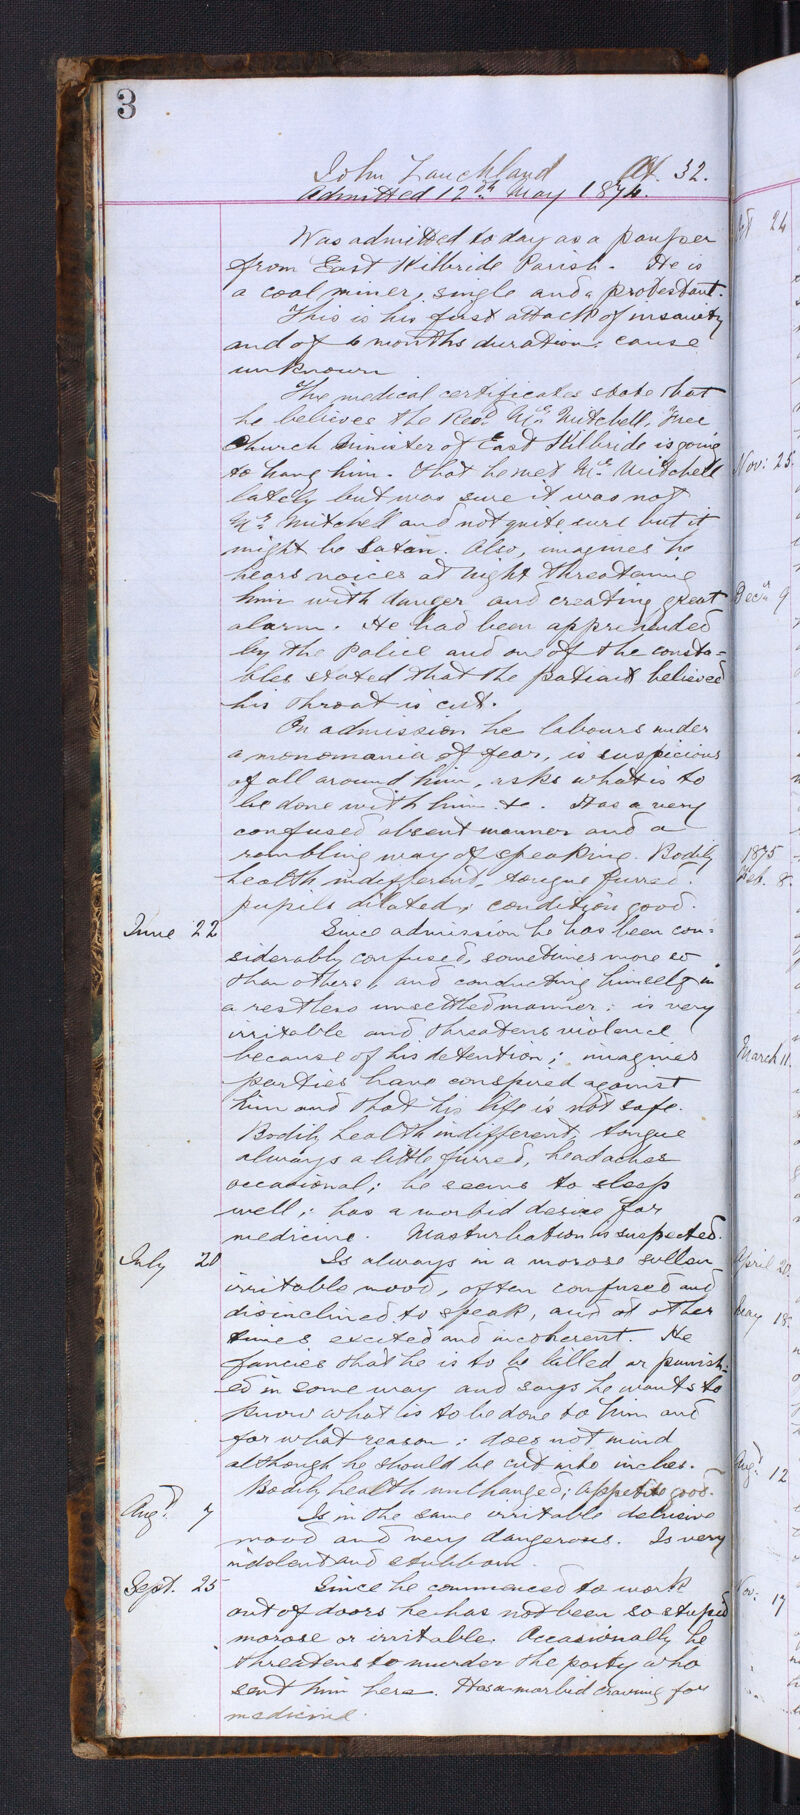 3
John Lauchland Æt. 32.
Admitted 12th May 1874.
Was admitted to day as a pauper
from East Kilbride Parish. He is
a coal miner, single and a protestant.
This is his first attack of insanity
and of 6 months duration: cause
unknown
The medical certificates state that
he believes the Revd. Mr. Mitchell, Free
Church Minister of East Kilbride is going
to hang him. That he met Mr. Mitchell
lately but was sure it was not
Mr. Mitchell and not quite sure but it
might be Satan. Also, imagines he
hears voices at night threatening
him with danger and creating great
alarm. He had been apprehended
by the Police and one of the consta=
bles stated that the patient believed
his throat is cut.
On admission he labours under
a monomania of fear, is suspicious
of all around him, asks what is to
be done with him &c. Has a very
confused absent manner and a
rambling way of speaking. Bodily
health indifferent, tongue furred:
pupils dilated; condition good.
June 22 Since admission he has been con=
siderably confused, sometimes more so
than others, and conducting himself in
a restless unsettled manner: is very
irritable and threatens violence
because of his detention; imagines
parties have conspired against
him and that his life is not safe.
Bodily health indifferent, tongue
always a little furred, headaches
occasional; he seems to sleep
well; has a morbid desire for
medicine. Masturbation is suspected.
July 20 Is always in a morose sullen
irritable mood, often confused and
disinclined to speak, and at other
times excited and incoherent. He
fancies that he is to be killed or punish=
ed in some way and says he wants to
know what is to be done to him and
for what reason; does not mind
although he should be cut into inches.
Bodily health unchanged; appetite good.
Augt. 7 Is in the same irritable delusive
mood and very dangerous. Is very
indolent and stubborn.
Sept. 25 Since he commenced to work
out of doors he has not been so stupid
morose or irritable. Occasionally he
threatens to murder the party who
sent him here. Has a morbid craving for
medicine.
24
Nov: 25.
Decr. 9
1875
Feb. 8.
March 11.
April 20.
May 18.
Augt. 12
Nov: 17